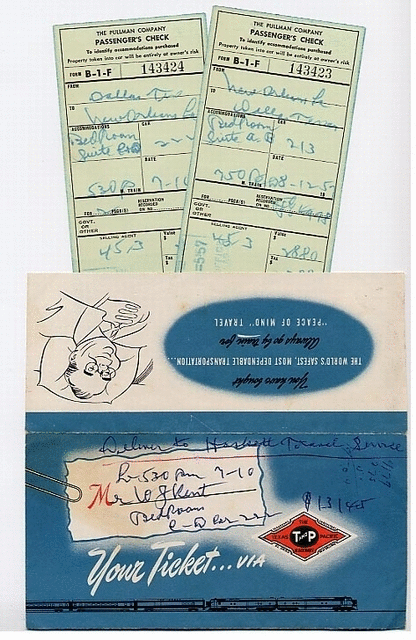 THE PULLMAN COMPANY
PASSENGER'S CHECK
To identify accommodations purchased
Property taken into car will be entirely at owner's risk
FORM B-1-F 143424
FROM Dallas Tex
TO New Orleans La
ACCOMMODATIONS CAR
Bedroom
Suite
DATE
M. TRAIN
FOR PSGR(S) RESERVATION RECORDED ON NO.
GOVT. OR OTHER
SELLING AGENT Value $
453
Tax $
THE PULLMAN COMPANY
PASSENGER'S CHECK
To identify accommodations purchased
Property taken into car will be entirely at owner's risk
FORM B-1-F 143423
FROM New Orleans La
TO Dallas Texas
ACCOMMODATIONS CAR
Bedroom
Suite 213
DATE
M. TRAIN
FOR PSGR(S) RESERVATION RECORDED ON NO.
GOVT. OR OTHER
SELLING AGENT Value $
453 2880
Tax $
You have bought
THE WORLD'S SAFEST, MOST DEPENDABLE TRANSPORTATION...
Always go by train for
"PEACE OF MIND" TRAVEL
Deliver to Haskett Travel Service
Lv 530 Pm 7-10
Mr W J Kent
Bedroom
C-D Car 222
THE
TEXAS T AND P PACIFIC
RAILWAY
Your Ticket... VIA